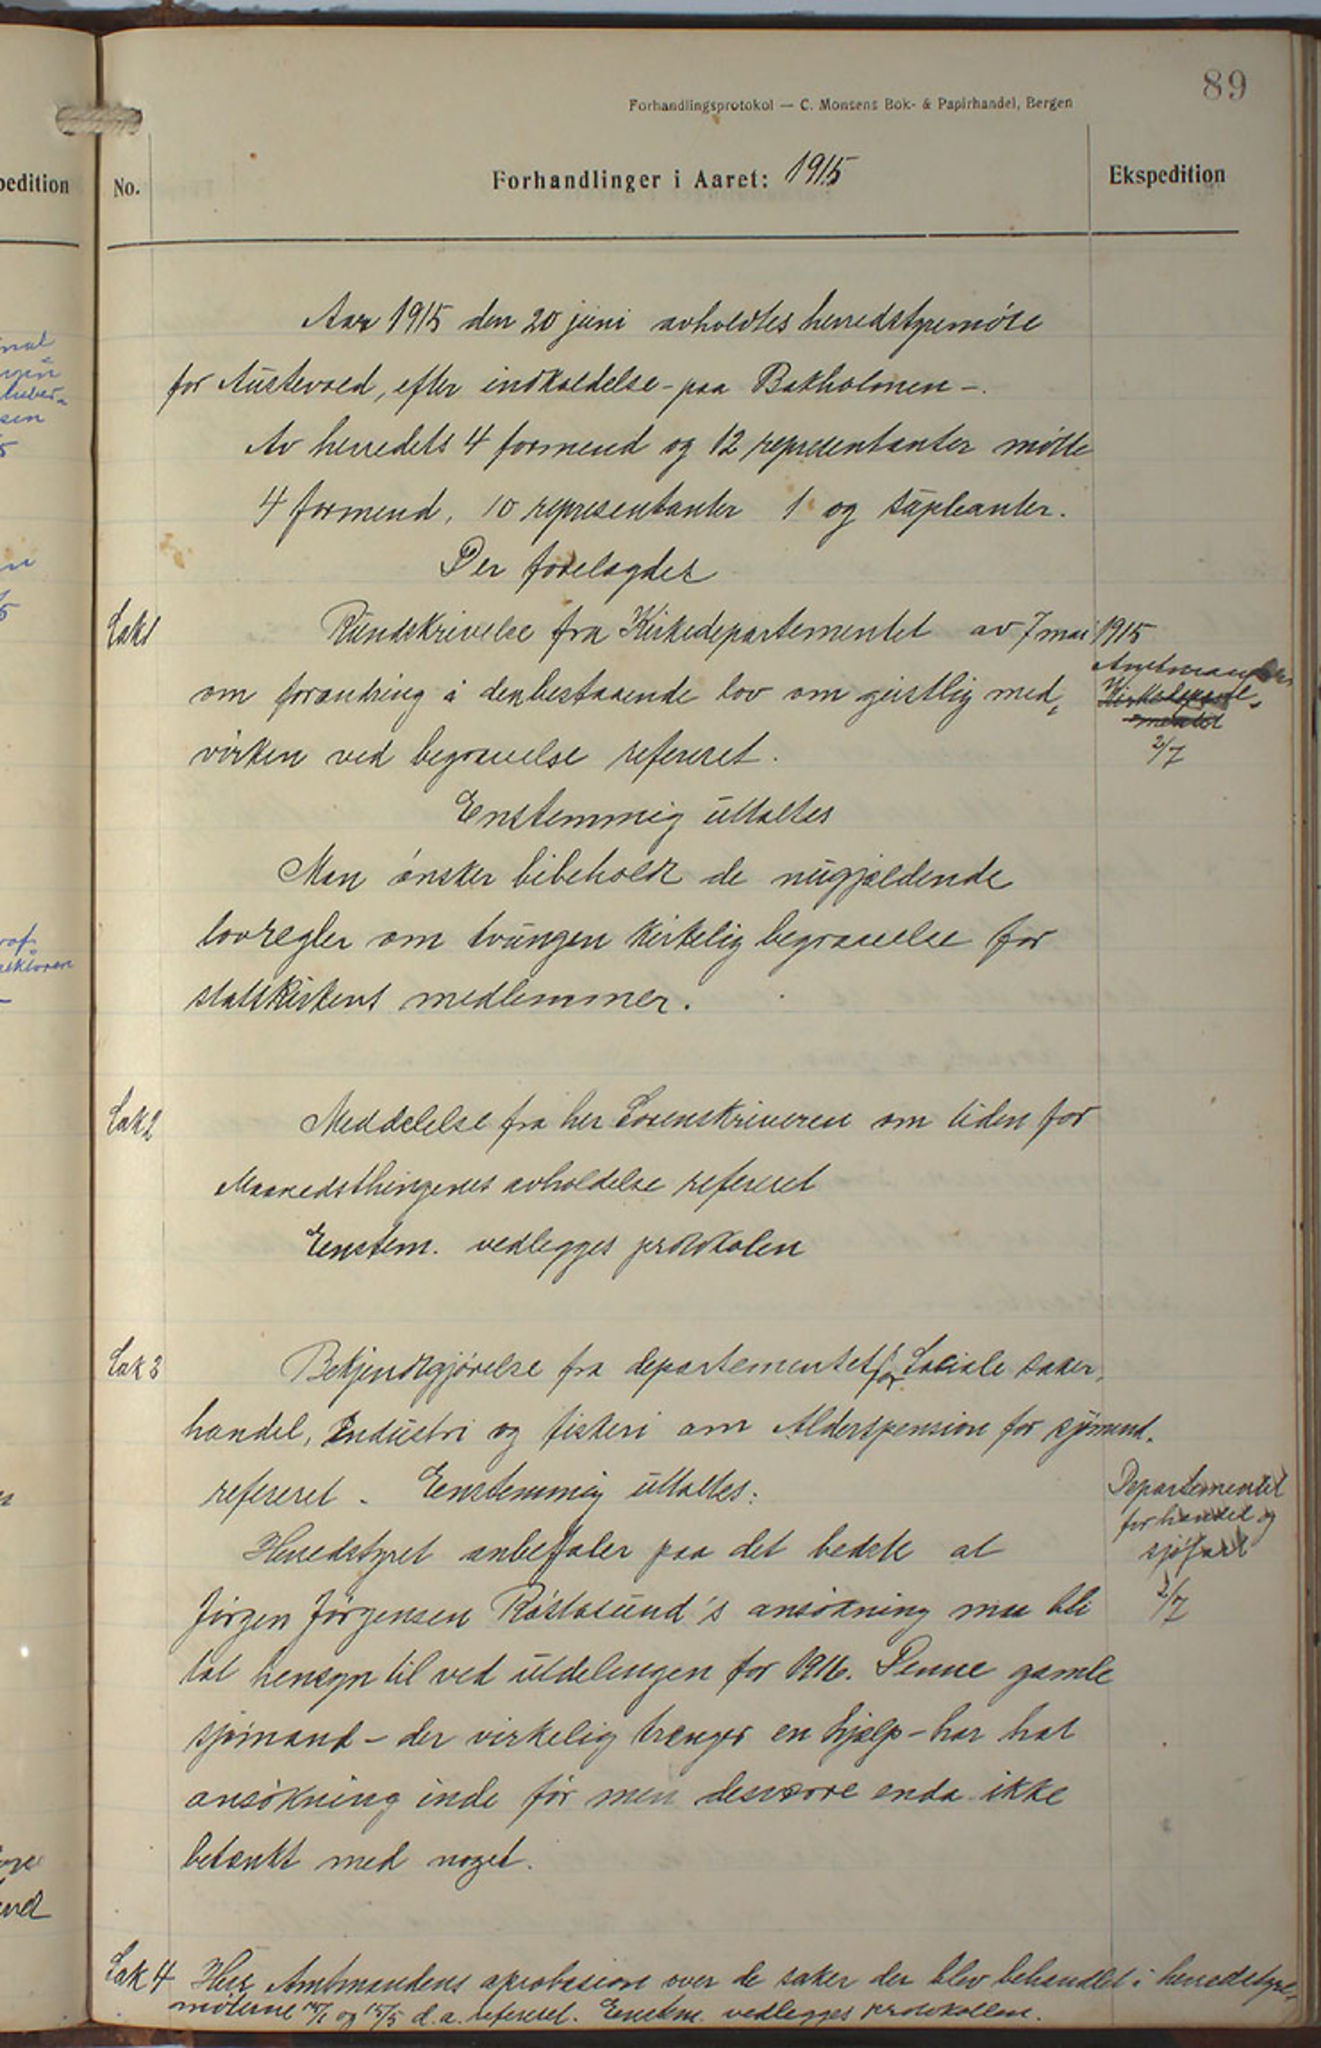 89
Forhandlingsprotokol — C. Monsens Bok- & Papirhandel, Bergen
pedition
No.
Forhandlinger i Aaret: 1915
Ekspedition
Aar 1915 den 20 juni avholdtes herredstyremöte
for Austevold, efter indkaldelse - paa Bakholmen -.
Av herredets 4 formend og 12 representanter mötte
4 formend, 10 representanter 1 og supleanter.
Der forelagdes
Sak 1
Rundskrivelse fra Kirkedepartementet av 7 mai 1915
om forandring i denbestaaende lov om geistlig med,
virken ved begravelse referert.
Amtmanden
Kirkedeparte-
mentet
2/7
Enstemmig uttaltes
Man ønsker bibeholdt de nugjældende
lovregler om tvungen kirkelig begravelse for
statskirkens medlemmer.
Sak 2
Meddelelse fra her Sorenskriveren om tiden for
Maanedsthingenes avholdelse referert
Eenstem. vedlegges protokolen
Sak 3
Bekjendtgjörelse fra departementet for Sociale saker,
handel, Industri og fiskeri om Alderspension for sjömend.
refereret. Eenstemmig uttaltes:
Herredstyret anbefaler paa det bedste at
Jörgen Jörgensen Röstasund's ansökning maa bli
tat hensyn til ved utdelingen for 1916. Denne gamle
sjömand - der virkelig trænger en hjælp - har hat
ansökning inde för men desværre enda ikke
betænkt med noget.
Departementet
for handel og
sjöfart
2/7
Sak 4
Herr Amtmandens aprobasion over de saker der blev behandlet i herredstyre-
möterne og 15/5 d.a. refereret. Eenstem. vedlegges protokollen.